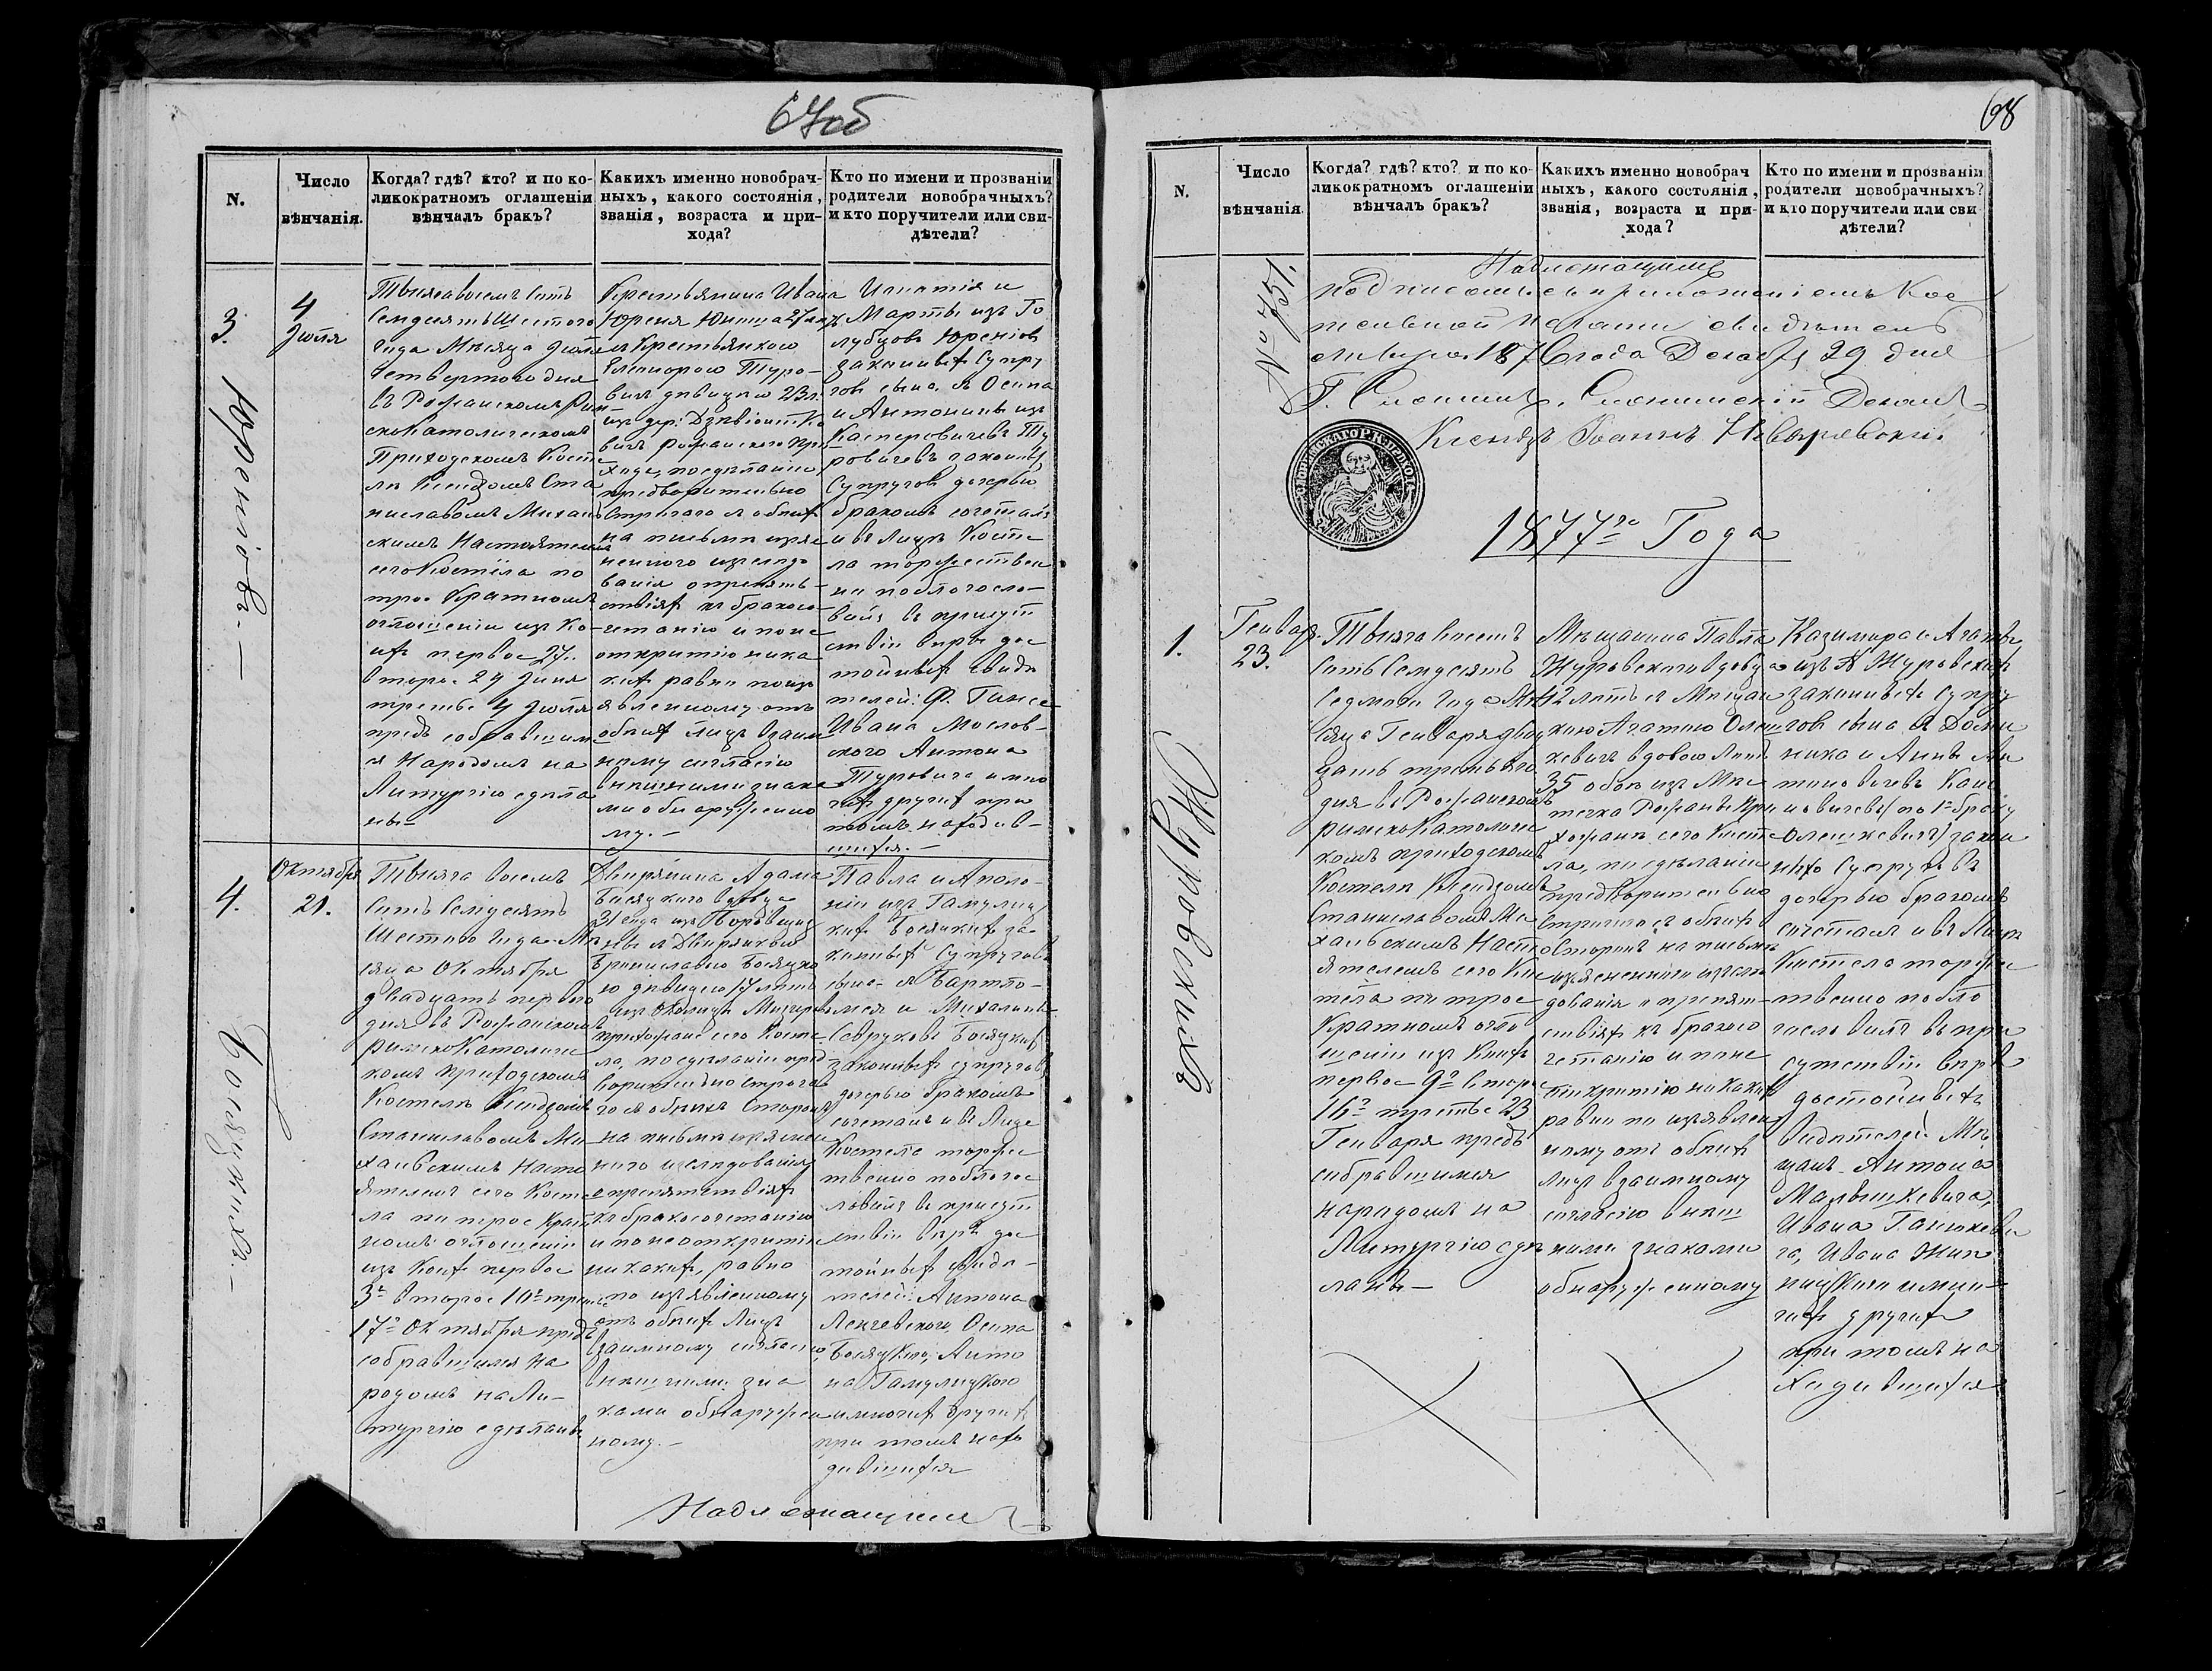 67об
N.
Число
вѣнчанія.
Когда? гдѣ? кто? и по ко-
ликократномъ оглашеніи
вѣнчалъ бракъ?
Какихъ именно новобрач-
ныхъ, какого состоянія,
званія, возраста и при-
хода?
Кто по имени и прозванію
родители новобрачныхъ?
и кто поручители или сви-
дѣтели?
3.
Юреніовъ. —
4
Іюля
Тысяча восемь сотъ
семдесятъ шестого
года мѣсяца Іюля
четвертого дня
въ Рожанскомъ Рим-
скокатолическомъ
Приходскомъ Косте
лѣ Ксендзомъ Ста
ниславомъ Михаль
скимъ Настоятелемъ
сего Костела по
трое кратномъ
оглошеніи изъ ко-
ихъ первое 27.
второе 29 Іюня
третье 4 Іюля
предъ собравшим
ся народомъ на
Литургію сдѣла
ны —
Крестьянина Ивана
Юреня Юноша 27 лѣтъ
съ Крестьянкою
Елеонорою Туро-
вичъ дѣвицею 23 л.
изъ дер:
вичъ Рожанского при
хода, по сдѣланіи
предворительно
строгаго съ обѣихъ
на письмѣ изъяс
неннаго изслѣдо
ванія о препят-
ствіяхъ къ бракосо-
четанію и по не
открытію ника
кихъ равно по изъ
явленному отъ
обѣихъ лицъ взаим
ному согласію
внѣшними знака
ми обнаруженно
му. —
Игнатія и
Марты изъ Го
лубцовъ Юреніовъ
законныхъ супру
говъ сына съ Осипа
и Антонины изъ
Касперовичевъ Ту
ровичевъ законныхъ
супруговъ дочерью
бракомъ сочеталъ
и въ лицѣ Косте
ла торжествен
но поблагосло-
вилъ въ присут
ствіи вѣры до
стойныхъ свидѣ
телей: Ф.
Ивана Маслов-
ского Антона
Туровича и мно
гихъ другихъ при
томъ находив-
шихся. —
4.
Босяцкихъ. —
Октября
21.
Тысяча восемь
сотъ семдесятъ
шестого года мѣ
сяца Октября
двадцать первого
дня въ Рожанскомъ
римскокатоличес
комъ приходскомъ
Костелѣ Ксендзомъ
Станиславомъ Ми
хальскимъ Насто
ятелемъ сего Косте
ла по трое крат
номъ оглошеніи
изъ коихъ первое
3го второе 10го третье
17го Октября предъ
собравшимся на
родомъ на Ли-
тургію сдѣланы
Дворянина Адама
Босяцкого вдовца
31 года изъ
съ дворянкою
Брониславою Босяцко
ю дѣвицею 17 лѣтъ
изъ околицы
прихожанъ сего Косте
ла, по сдѣланіи пред
ворительно строга
го съ обѣихъ сторонъ
на письмѣ изъяснен
ного изслѣдованія
о препятствіяхъ
къ бракосочетанію
и по не открытіи
никакихъ, равно
по изъявленному
отъ обѣихъ лицъ
взаимному согласію
внѣшними зна
ками обнаружен
ному. —
Павла и Аполо-
ніи изъ Гамулец
кихъ Босяцкихъ за
конныхъ супруговъ
сына съ Бартло-
мея и Михалины
Севруковъ Босяцкихъ
законныхъ супруговъ
дочерью бракомъ
сочеталъ и въ лице
Костела торже
ственно поблагос
ловилъ въ присут
ствіи вѣры до
стойныхъ свидѣ-
телей: Антона
Ленчевского, Осипа
Босяцкого, Анто
на Гамулецкого
и многихъ другихъ
при томъ нахо
дившихся
Надлежащимъ
68
N.
Число
вѣнчанія.
Когда? гдѣ? кто? и по ко-
ликократномъ оглашеніи
вѣнчалъ бракъ?
Какихъ именно новобрач
ныхъ, какого состоянія,
званія, возраста и при-
хода?
Кто по имени и прозванію
родители новобрачныхъ?
и кто поручители или сви
дѣтели?
No 751.
Надлежащимъ
подписомъ съ приложеніемъ Кос
тельной печати свидѣтель
ствую. 1876 года Декабря 29 дня
Г. Слонимъ, Слонимскій Деканъ
Ксендзъ Іоаннъ
1877го Года
1.
Журовскихъ
Генваря
23.
Тысяча восемь
сотъ семдесятъ
седмого года мѣ
сяца Генваря двад
цать третьяго
дня въ Рожанскомъ
римскокатоличес
комъ приходскомъ
Костелѣ Ксендзомъ
Станиславомъ Ми
хальскимъ Насто
ятелемъ сего Кос
тела по трое
кратномъ огло
шеніи изъ коихъ
первое 9го второе
16го третье 23
Генваря предъ
собравшимся
народомъ на
Литургію сдѣ
ланы —
Мѣщанина Павла
Журовского вдовца
42 лѣтъ съ мѣщан
кою Агатою Олеш
кевичъ вдовою лѣтъ
35 обои изъ мѣс
течка Рожаны при
хожанъ сего Косте
ла, по сдѣланіи
предворительно
строгого съ обѣихъ
сторонъ на письмѣ
изъясненного изслѣ
дованія о препят-
ствіяхъ къ бракосо
четанію и по не
открытію никакихъ
равно по изъявлен
ному отъ обѣихъ
лицъ взаимному
согласію внѣш
ними знаками
обнаруженному
Казимира и Агаты
изъ Журовскихъ
законныхъ супру
говъ сына съ Доми
ника и Анны Ан
тоновичевъ
(по 1му браку
Олешкевичъ) закон
ныхъ супруговъ
дочерью бракомъ
сочеталъ и въ лицѣ
Костела торже
ственно побла
гословилъ въ при
сутствіи вѣры
достойныхъ
видѣтелей: Мѣ
щанъ Антона
Малышкевича,
Ивана Ганюкеви
ча, Ивана
и мно-
гихъ другихъ
при томъ на
ходившихся